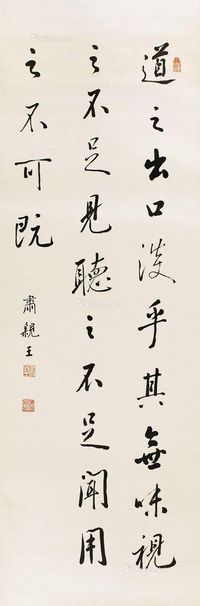 道之出口淡乎其無味視
之不足見聽之不足聞用
之不可既
肅親王